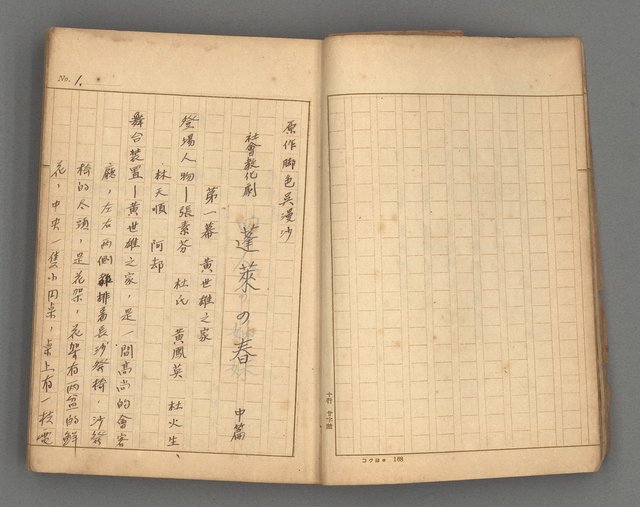 No. 1.
原作脚色吳漫沙
社會教化劇 蓬萊の春 中篇
第一幕 黃世雄之家
登場人物—張素芬 杜氏 黃鳳英 杜火生
林天順 阿却
舞台裝置—黃世雄之家，是一間高尚的會客
廳，左右兩側排着長沙發椅，沙發
椅的尽頭，是花架，花架有兩盆的鮮
花，中央一隻小円桌，桌上有一枝電
十行 廿下詰
コクヨ 168